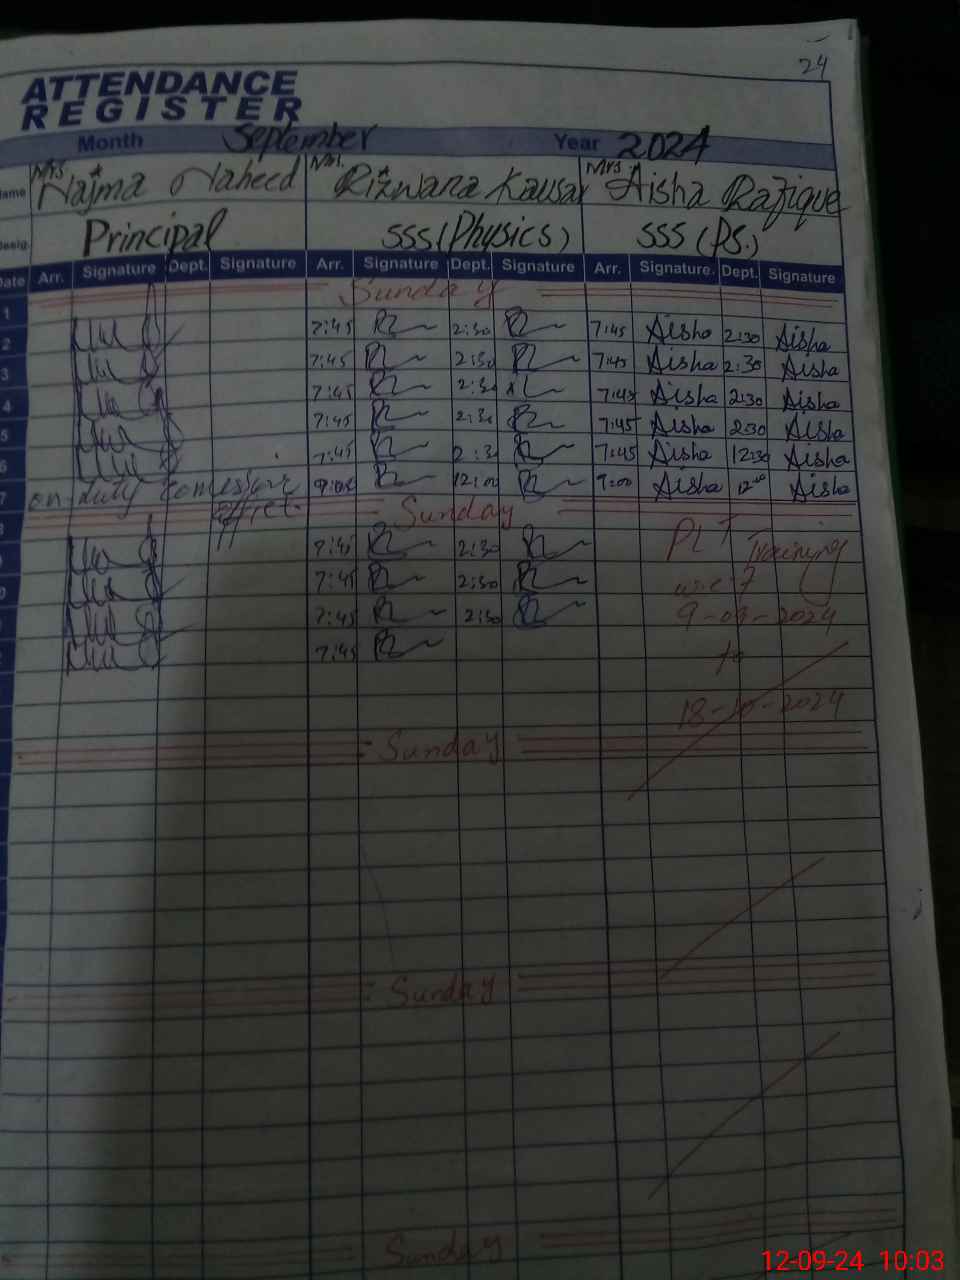 24
ATTENDANCE
REGISTER
Month September Year 2024
Name Mrs. Najma Naheed Mrs. Rizwana Kausar Mrs. Aisha Rafique
Desig. Principal SSS (Physics) SSS (P.S.)
Date Arr. Signature Dept. Signature Arr. Signature Dept. Signature Arr. Signature. Dept. Signature
1 Sunday
2 7:45 2:30 7:45 Aisha 2:30 Aisha
3 7:45 2:30 7:45 Aisha 2:30 Aisha
4 7:45 2:30 7:45 Aisha 2:30 Aisha
5 7:45 2:30 7:45 Aisha 2:30 Aisha
6 7:45 2:30 7:45 Aisha 12:30 Aisha
7 on duty 9:00 12:00 9:00 Aisha 12:00 Aisha
Sunday
7:45 2:30 PLT Training
7:45 2:30 w.e.f
7:45 2:30 9-09-2024
7:45 to
18-10-2024
Sunday
Sunday
Sunday
12-09-24 10:03